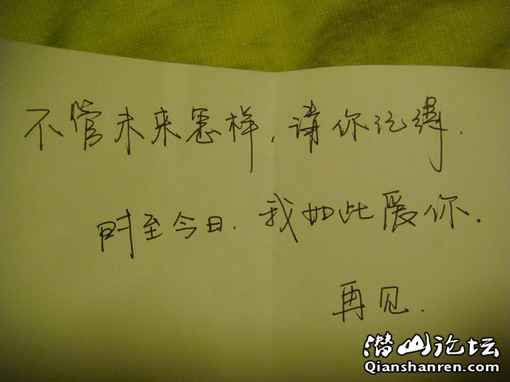 不管未来怎样，请你记得.
时至今日.我如此爱你.
再见.
潜山论坛
Qianshanren.com